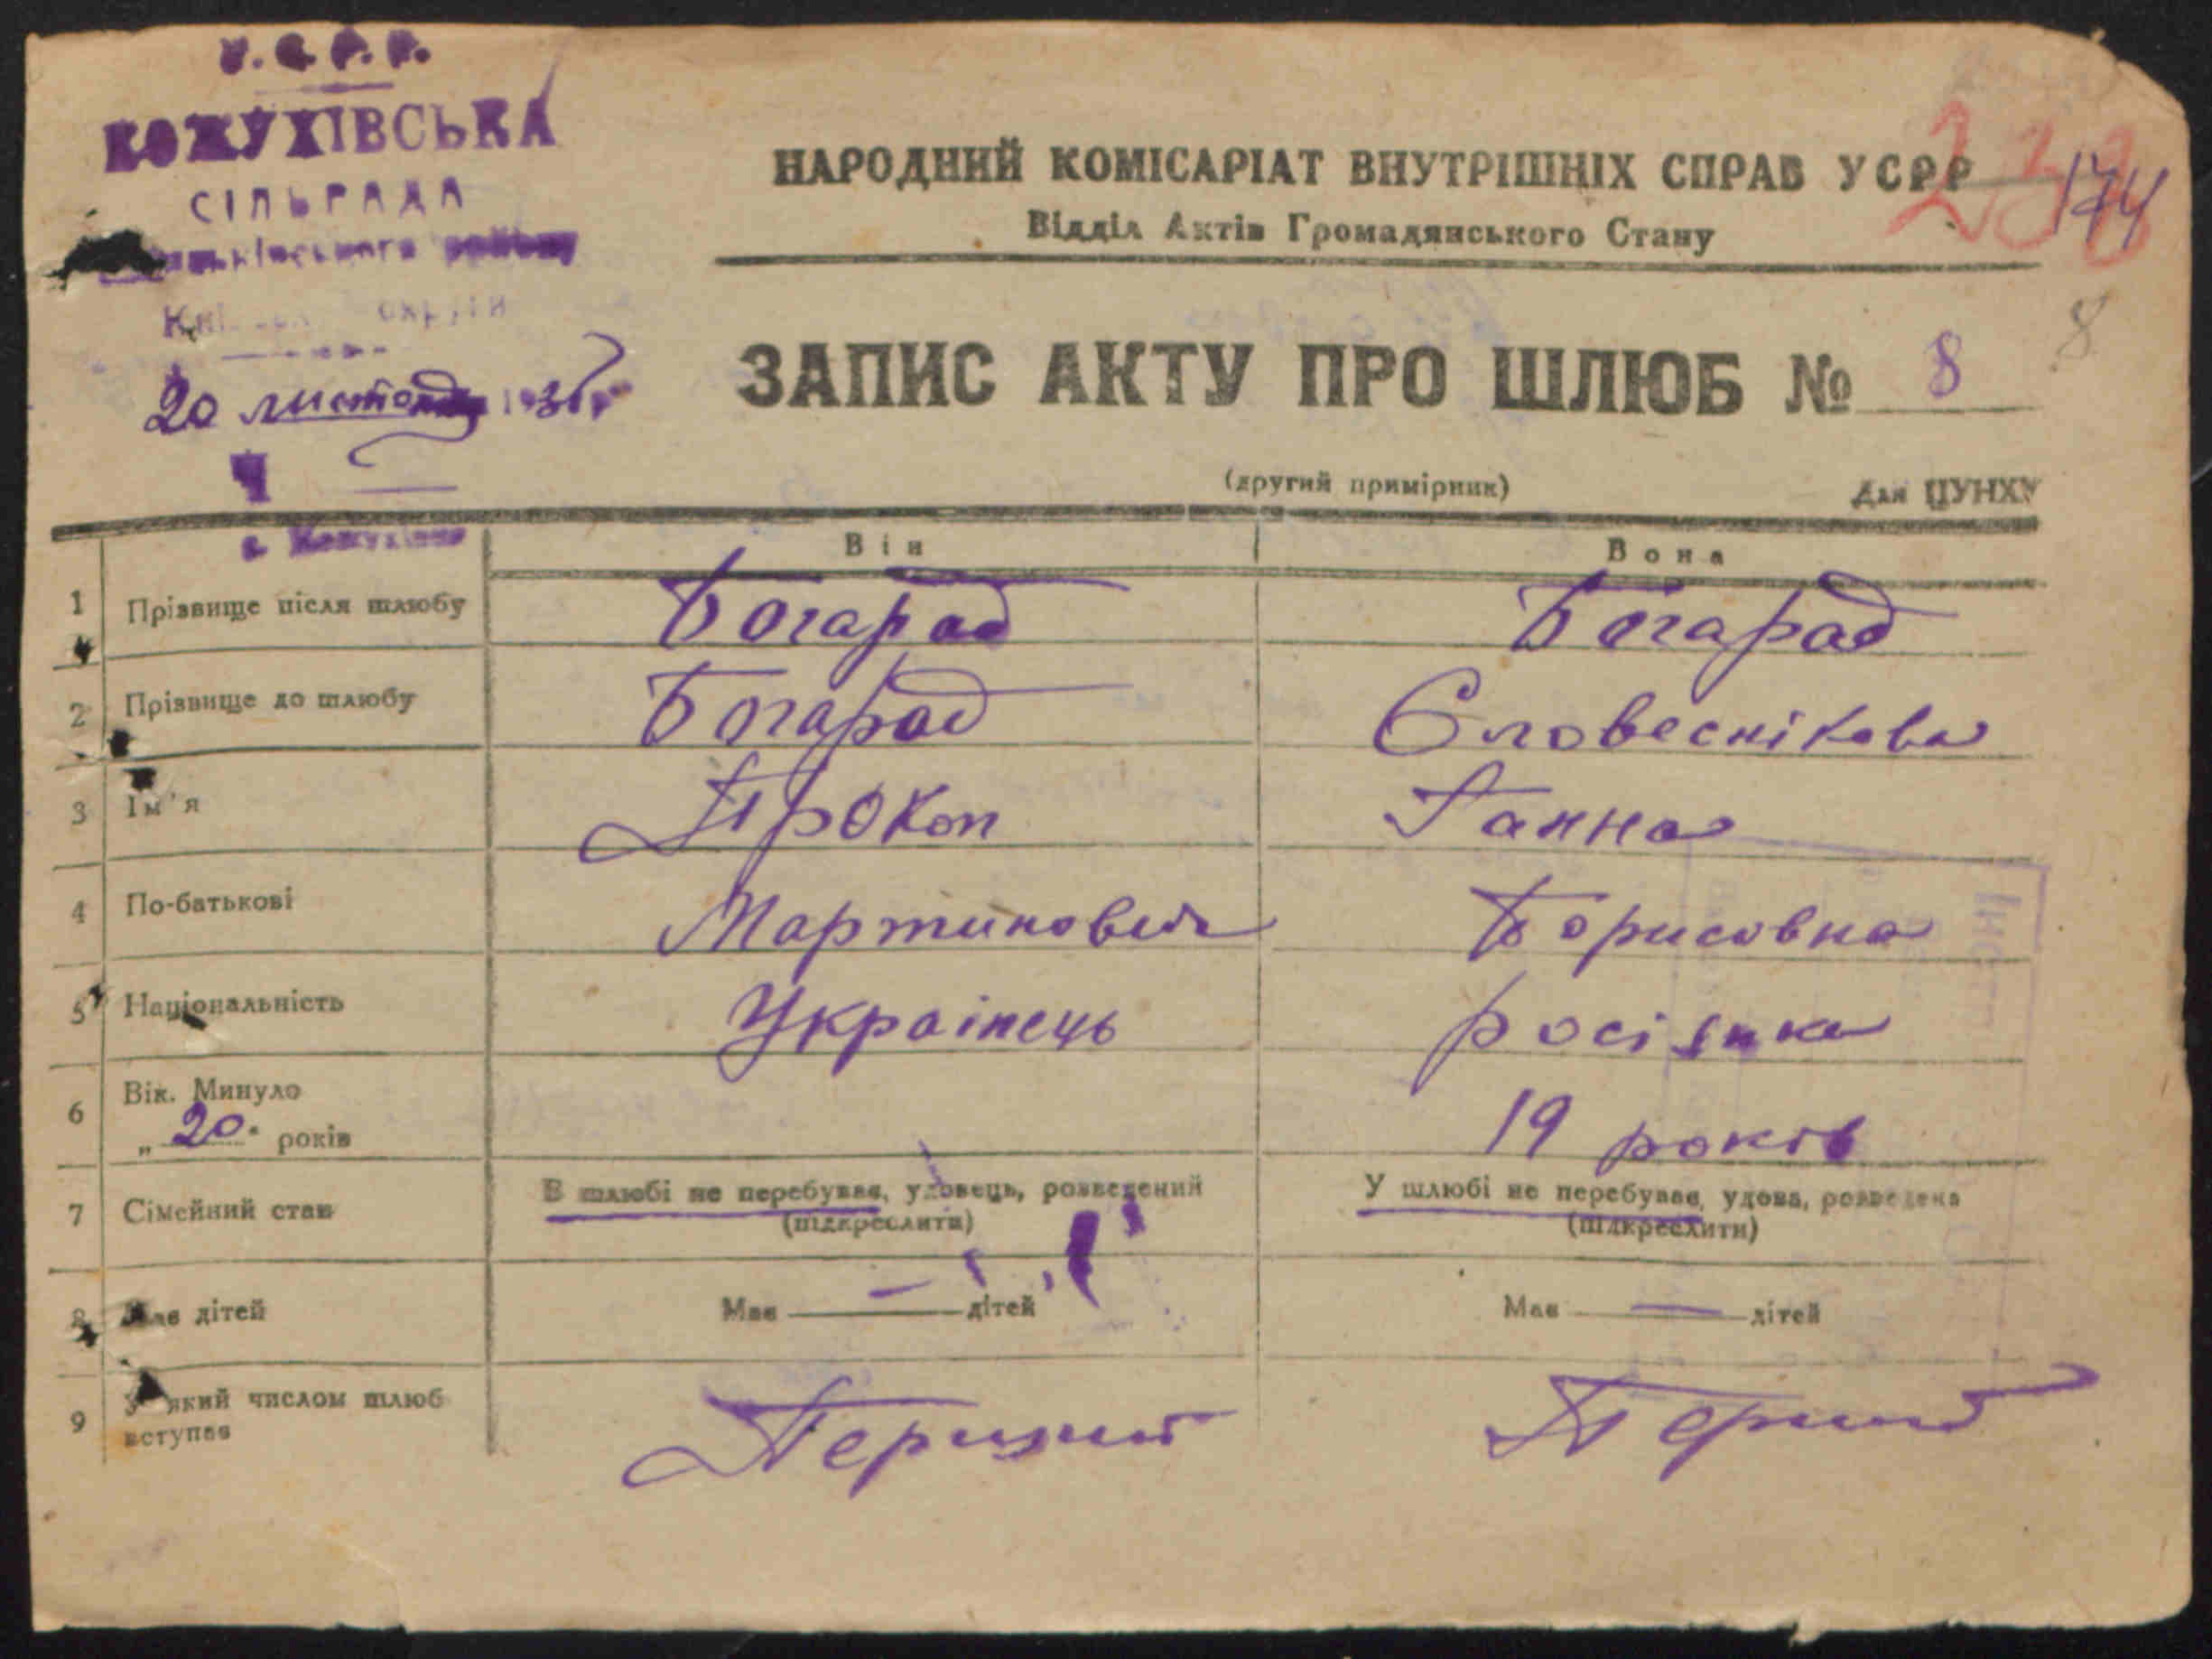 У.С.Р.Р.
КОЖУХІВСЬКА
СІЛЬРАДА
округи
20 листопад 193
НАРОДНИЙ КОМІСАРІАТ ВНУТРІШНІХ СПРАВ УСРР
174
Відділ Актів Громадянського Стану
ЗАПИС АКТУ ПРО ШЛЮБ № 8
8
(другий примірник) Для ЦУНХУ
Ч
с. Кожухівка
Він Вона
1 Прізвище після шлюбу Богарад Богарад
2 Прізвище до шлюбу Богарад Словеснікова
3 Ім'я Прокоп Ганна
4 По-батькові Мартинович Борисовна
5 Національність Українець росіянка
6 Вік. Минуло „20" років 19 років
7 Сімейний стан В шлюбі не перебував, удовець, розведений (підкреслити) У шлюбі не перебувала, удова, розведена (підкреслити)
8 Має дітей Має — дітей Має — дітей
9 У який числом шлюб вступає Перший Перший